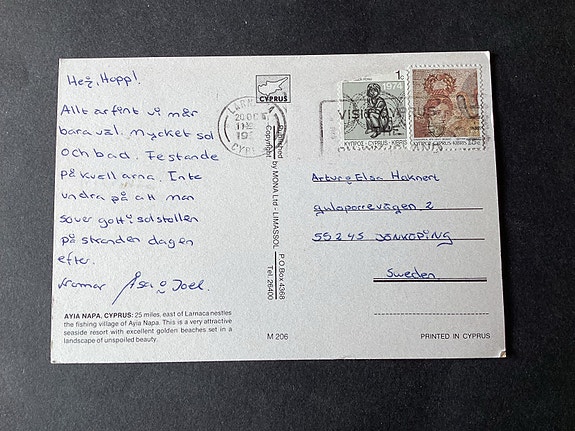 Hej, Hopp!
Allt är fint vi mår
bara väl. Mycket sol
och bad. Festande
på kvällarna. Inte
undra på att man
sover gott i solstolen
på stranden dagen
efter.
Kramar Åsa o Joel.
AYIA NAPA, CYPRUS: 25 miles, east of Larnaca nestles
the fishing village of Ayia Napa. This is a very attractive
seaside resort with excellent golden beaches set in a
landscape of unspoiled beauty.
CYPRUS
LARNACA
20 OC
CYPRUS
Copyright
by MONA Ltd - LIMASSOL
P.O Box 4368
Tel. 26400
M 206
1c
1974
ΚΥΠΡΟΣ - CYPRUS - KIBRIS
VISIT
CYPRUS KIBRIS
Artur o Elsa Haknert
55245 JÖNKÖPING
Sweden
PRINTED IN CYPRUS